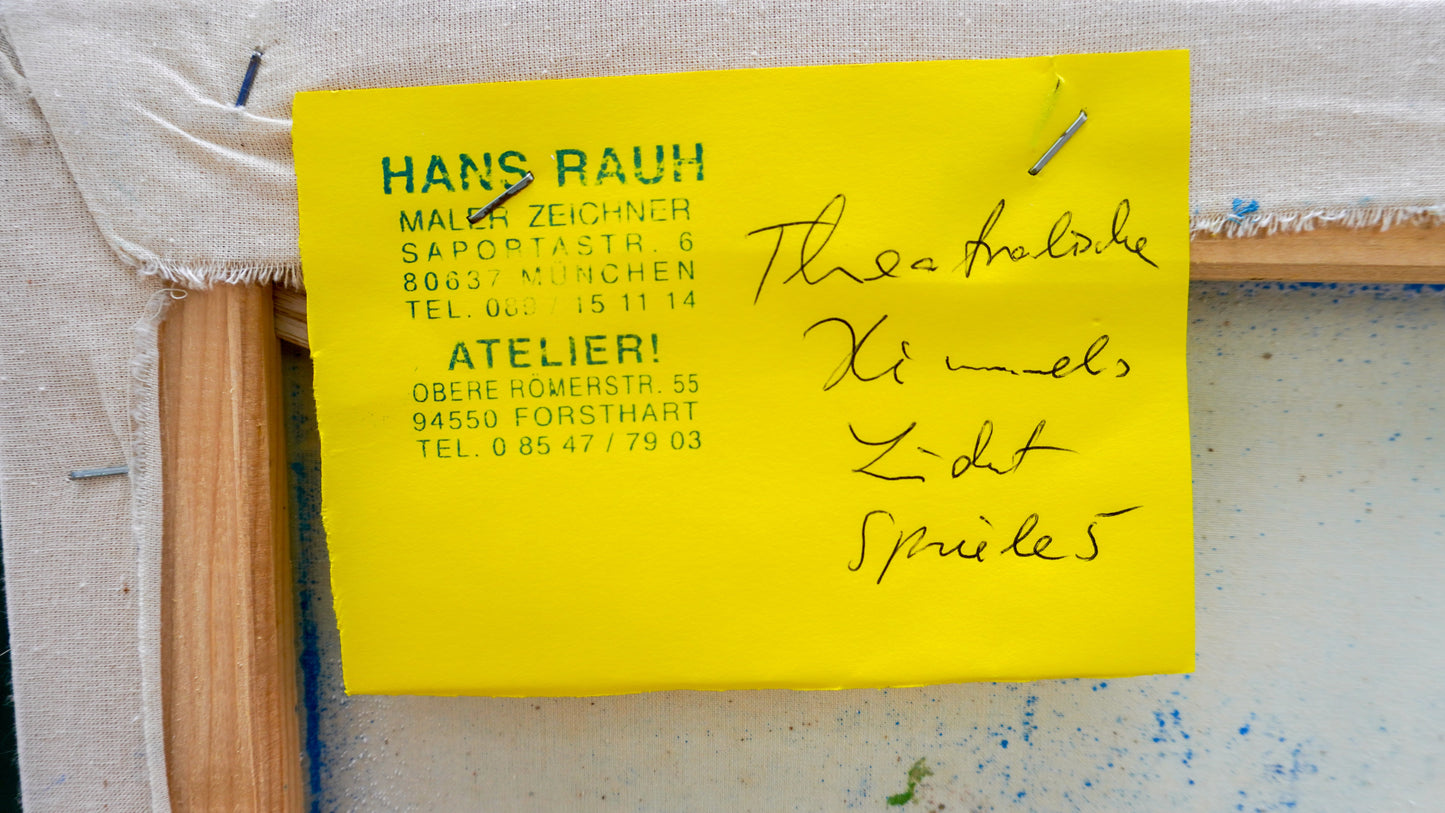 HANS RAUH
MALER ZEICHNER
SAPORTASTR. 6
80637 MÜNCHEN
TEL. 089 / 15 11 14
ATELIER!
OBERE RÖMERSTR. 55
94550 FORSTHART
TEL. 0 85 47 / 79 03
Theatralische
Himmels
Licht
Spiele 5